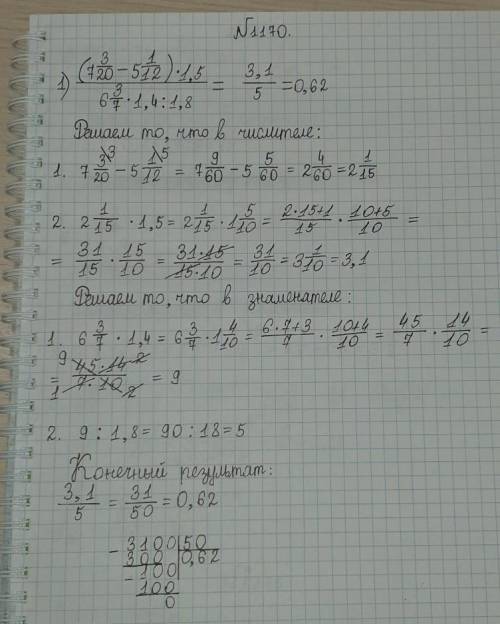 №1170.
1) ((7 3/20 − 5 1/12) · 1,5)/(6 3/7 · 1,4 : 1,8) = 3,1/5 = 0,62
Решаем то, что в числителе:
1. 7 3/20 \3 − 5 1/12 \5 = 7 9/60 − 5 5/60 = 2 4/60 = 2 1/15
2. 2 1/15 · 1,5 = 2 1/15 · 1 5/10 = (2·15+1)/15 · (10+5)/10 =
= 31/15 · 15/10 = (31·15)/(15·10) = 31/10 = 3 1/10 = 3,1
Решаем то, что в знаменателе:
1. 6 3/7 · 1,4 = 6 3/7 · 1 4/10 = (6·7+3)/7 · (10+4)/10 = 45/7 · 14/10 =
= 9 (45·14)/(7·10) 2 1 2 = 9
2. 9 : 1,8 = 90 : 18 = 5
Конечный результат:
3,1/5 = 31/50 = 0,62
− 3100 | 50
300 | 0,62
− 100
100
0